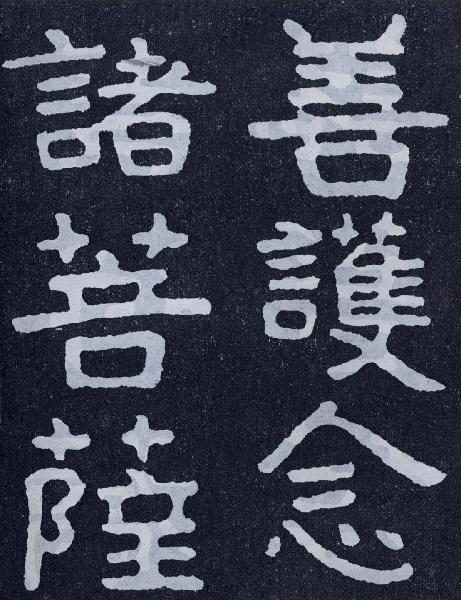 善護念
諸菩薩